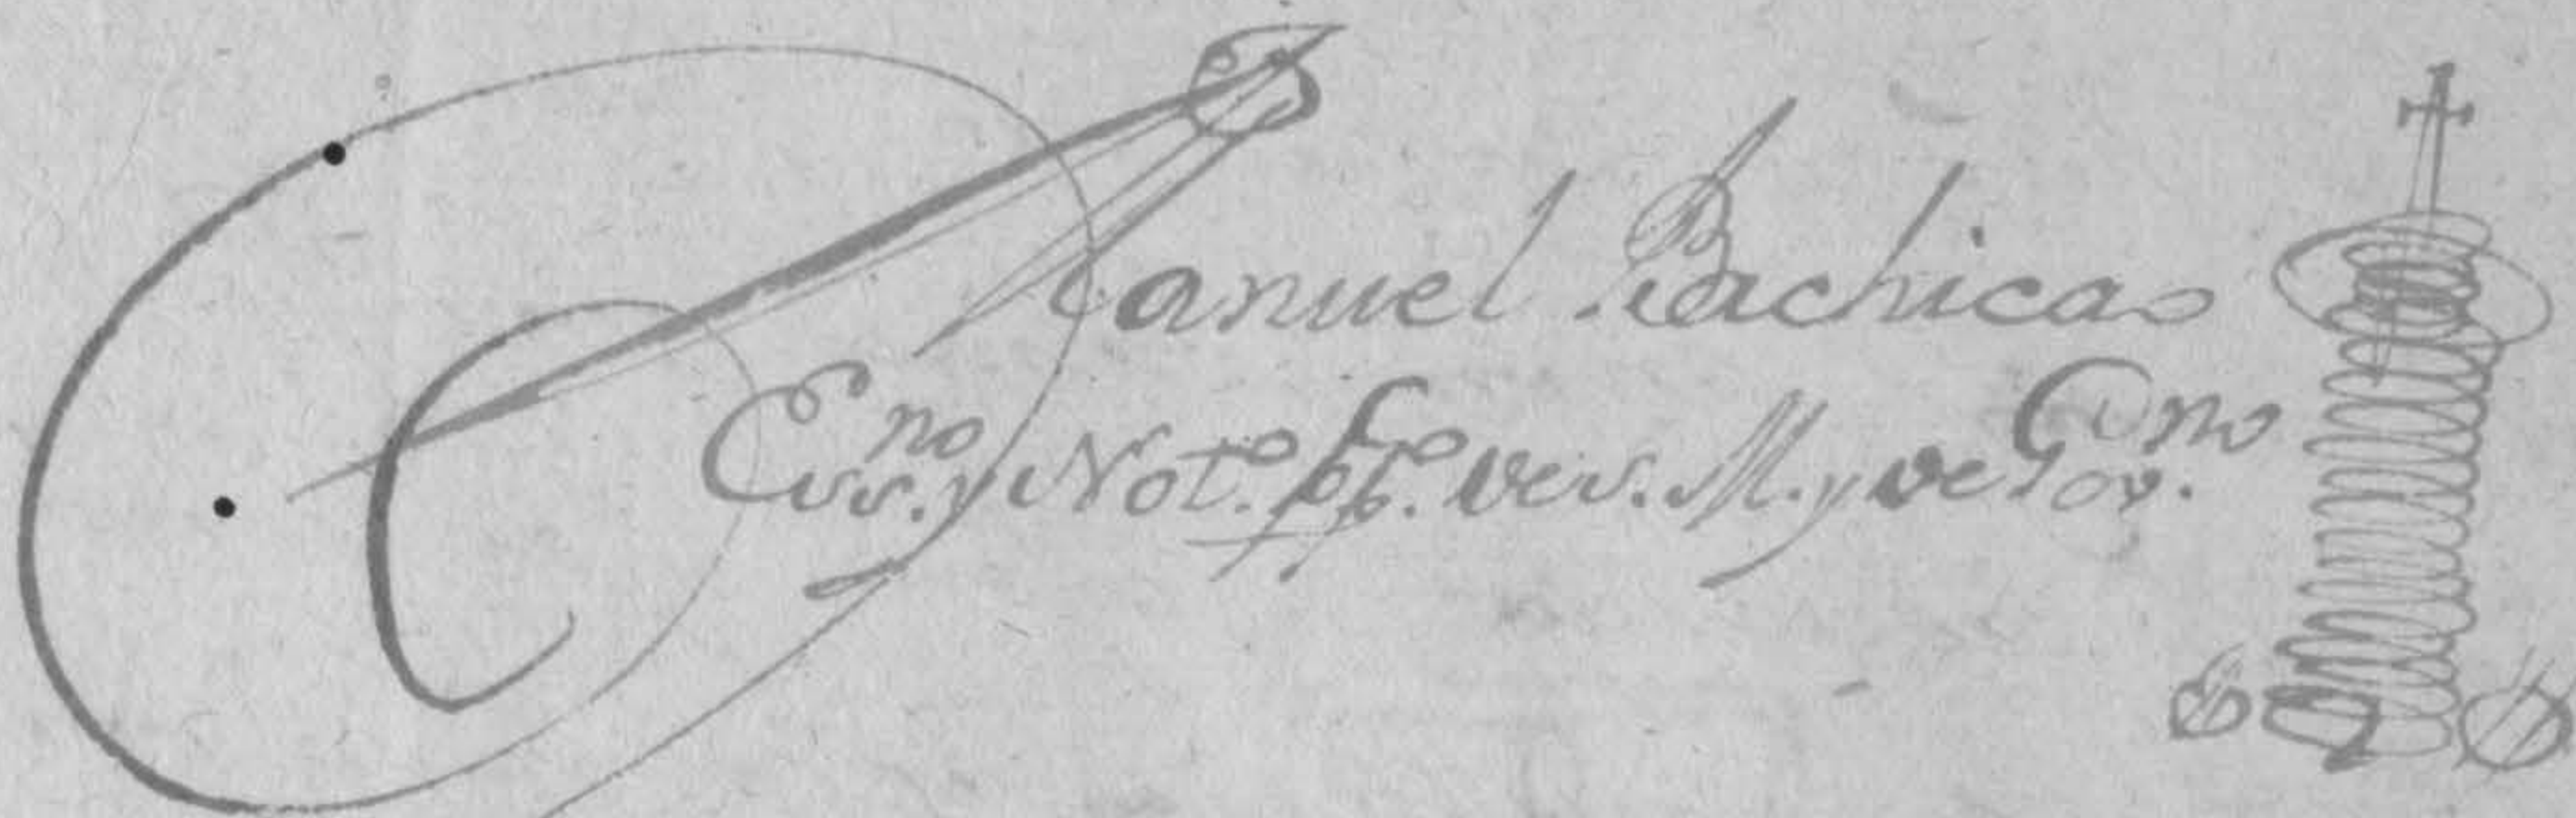 Manuel Bachicao
Ess.no y Not.o ppco. de s. M. y de Gov.no